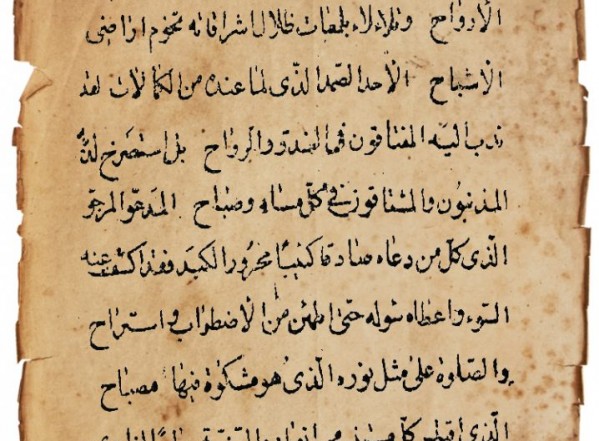 الأرواح وتلاءلاء بلمعات ظلال اشراقاته تخوم اراضى
الاشباح الأحد الصمد الذى لما عنده من الكمالات لقد
ندب اليه المفتاقون فى الغدو والرواح بل استصرخ لديه
المذنبون والمشتاقون فى كل مساء وصباح المدعو المرجو
الذى كل من دعاه صادقا كئيبا محرور الكبد فقد اكشف عنه
السوء واعطاه سوله حتى اطمئن من الاضطراب واستراح
والصلوة على مثل نوره الذى هو مشكوة فيها مصباح
الذى